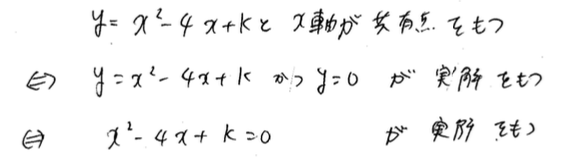 y = x²-4x+kと x軸が 共有点をもつ
⇔ y=x²-4x+k かつ y=0 が 実解をもつ
⇔ x²-4x+k=0 が 実解をもつ